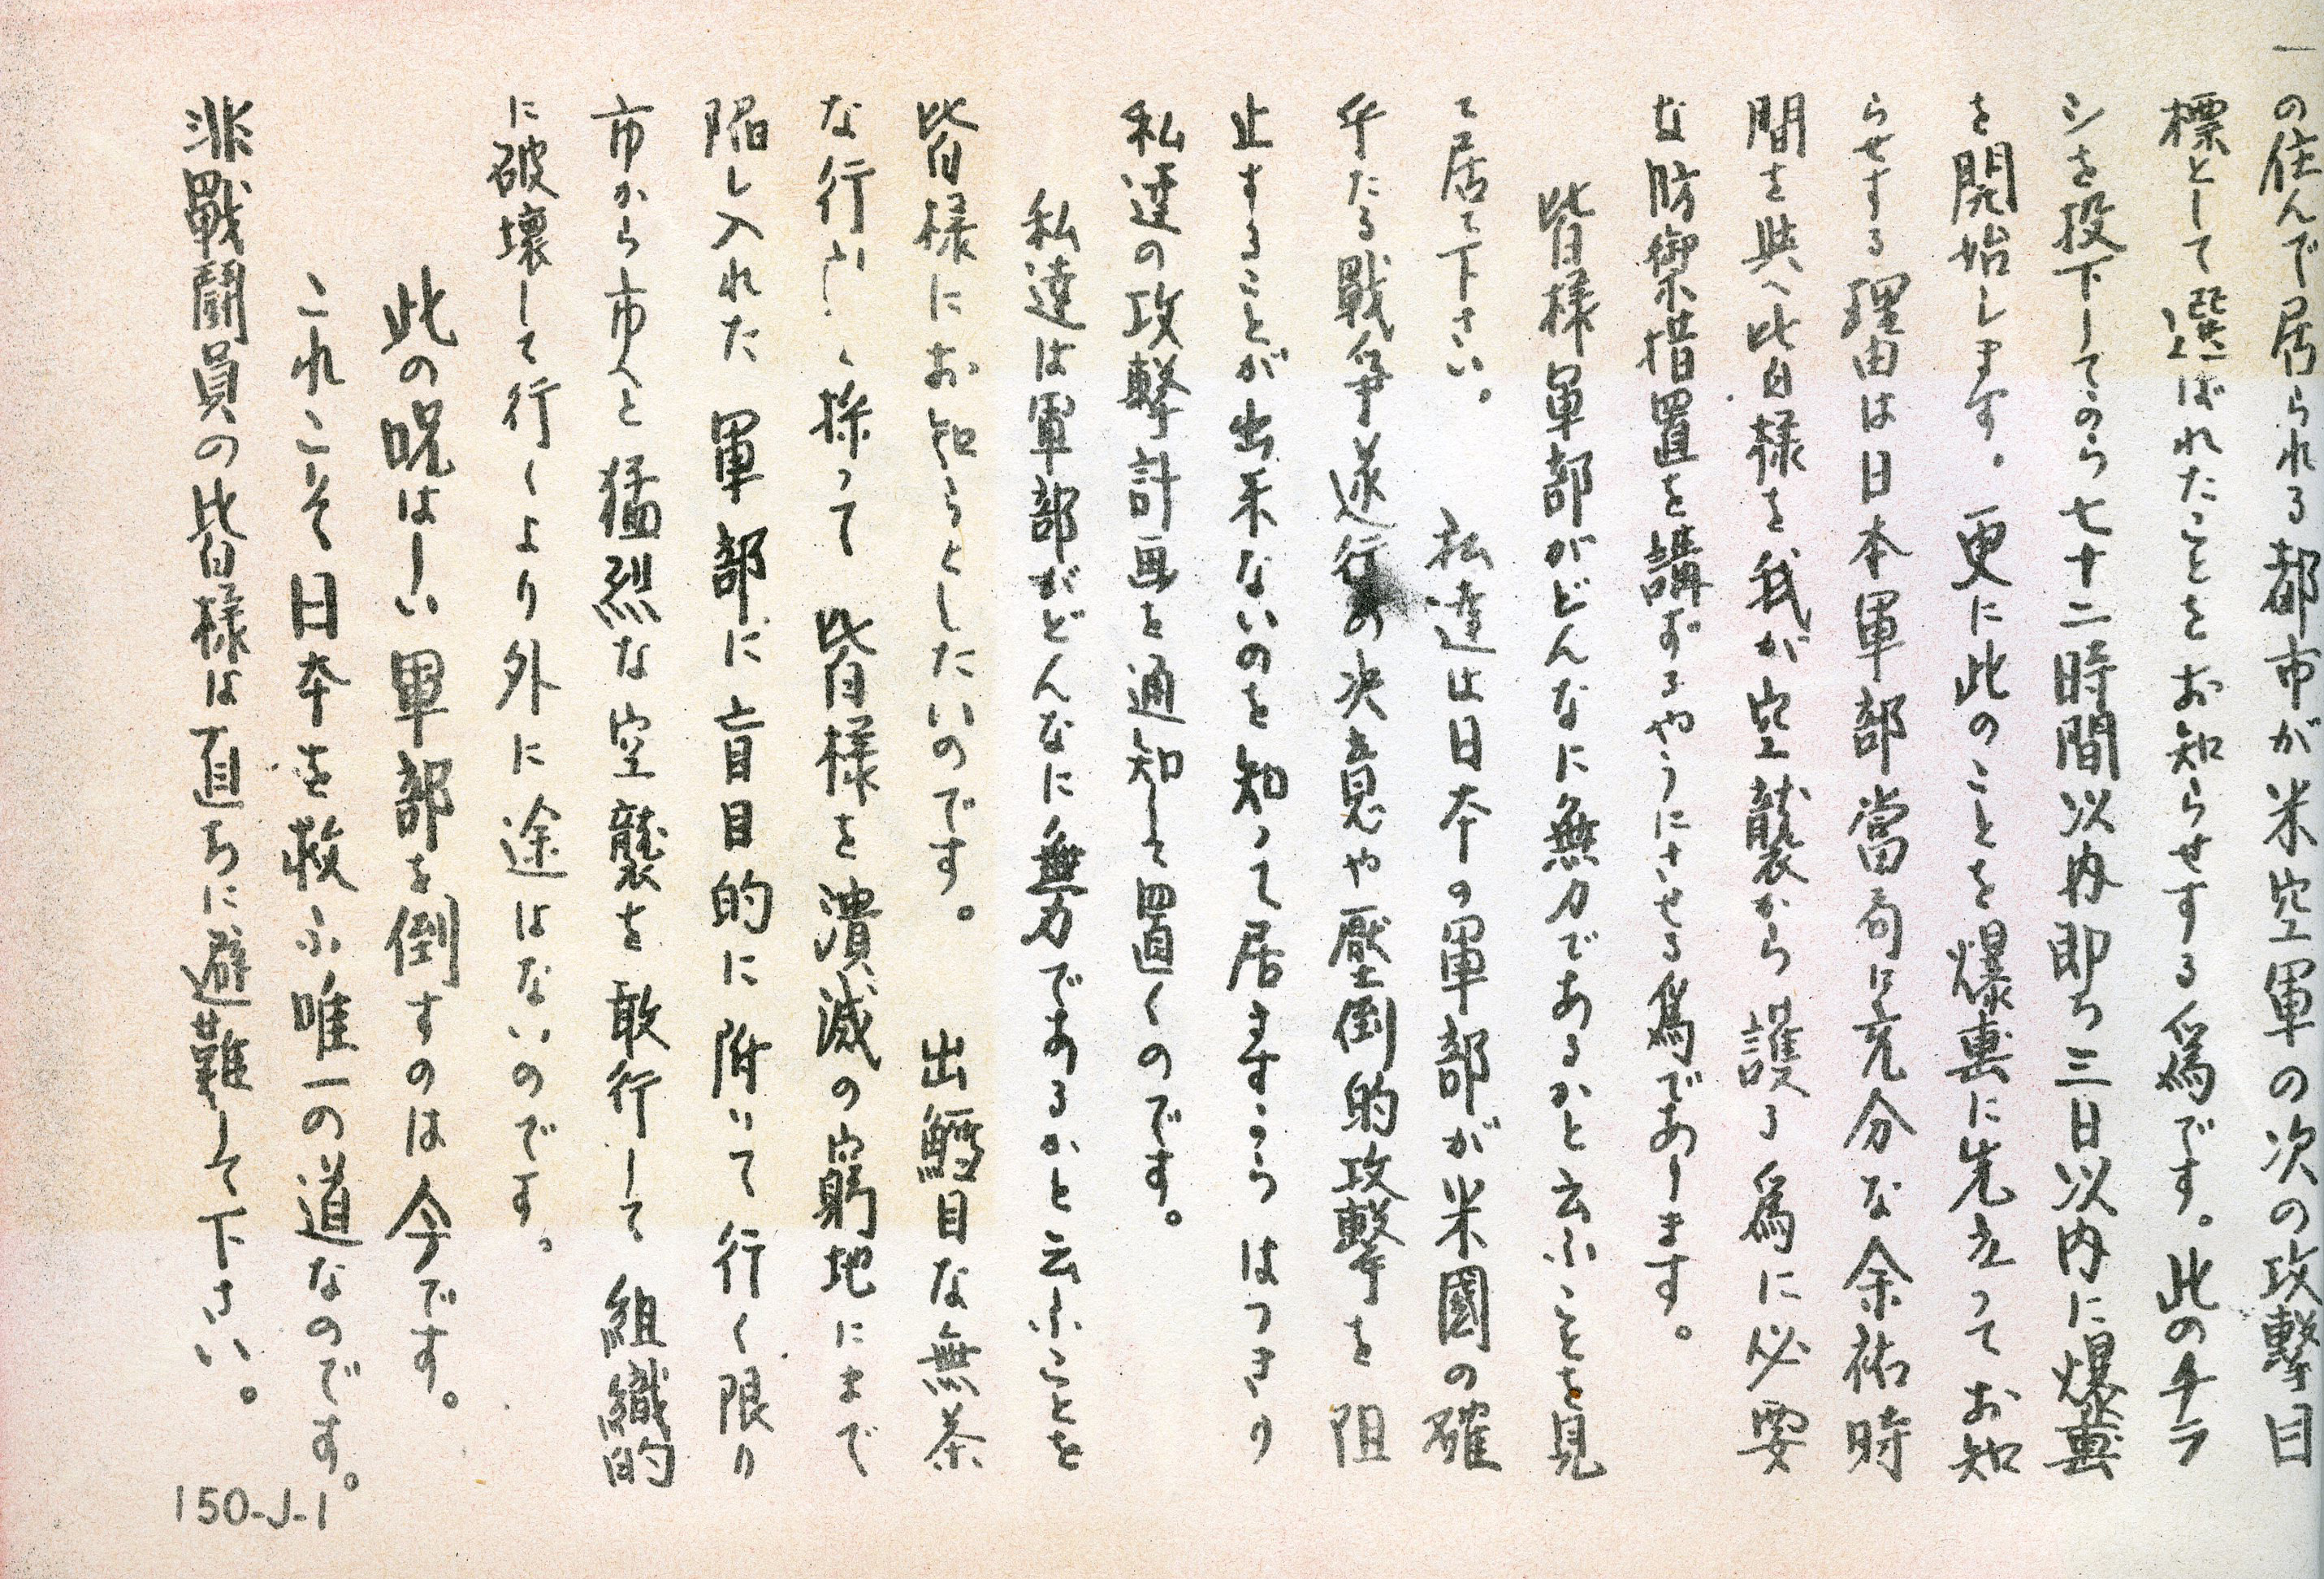 の住んで居られる都市が米空軍の次の攻撃目
標として選ばれたことをお知らせする為です。此のチラ
シを投下してから七十二時間以内即ち三日以内に爆撃
を開始します。更に此のことを爆撃に先立つてお知
らせする理由は日本軍部當局に充分な余祐時
間を與へ皆様を我が空襲から護る為に必要
な防禦措置を講ずるやうにさせる為であります。
皆様軍部がどんなに無力であるかと云ふことを見
て居て下さい。私達は日本の軍部が米國の確
乎たる戰爭遂行の決意や壓倒的攻撃を阻
止することが出来ないのを知つて居ますからはつきり
私達の攻撃計画を通知して置くのです。
私達は軍部がどんなに無力であるかと云ふことを
皆様にお知らせしたいのです。出鱈目な無茶
な行ひを採つて皆様を潰滅の窮地にまで
陥し入れた軍部に盲目的に附いて行く限り
市から市へと猛烈な空襲を敢行して組織的
に破壊して行くより外に途はないのです。
此の呪はしい軍部を倒すのは今です。
これこそ日本を救ふ唯一の道なのです。
非戰鬪員の皆様は直ちに避難して下さい。
150-J-1